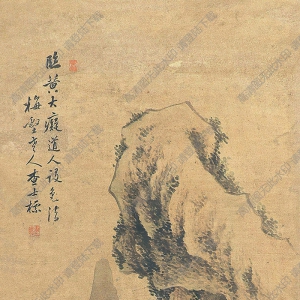 臨黄大癡道人設色法
梅壑散人查士標